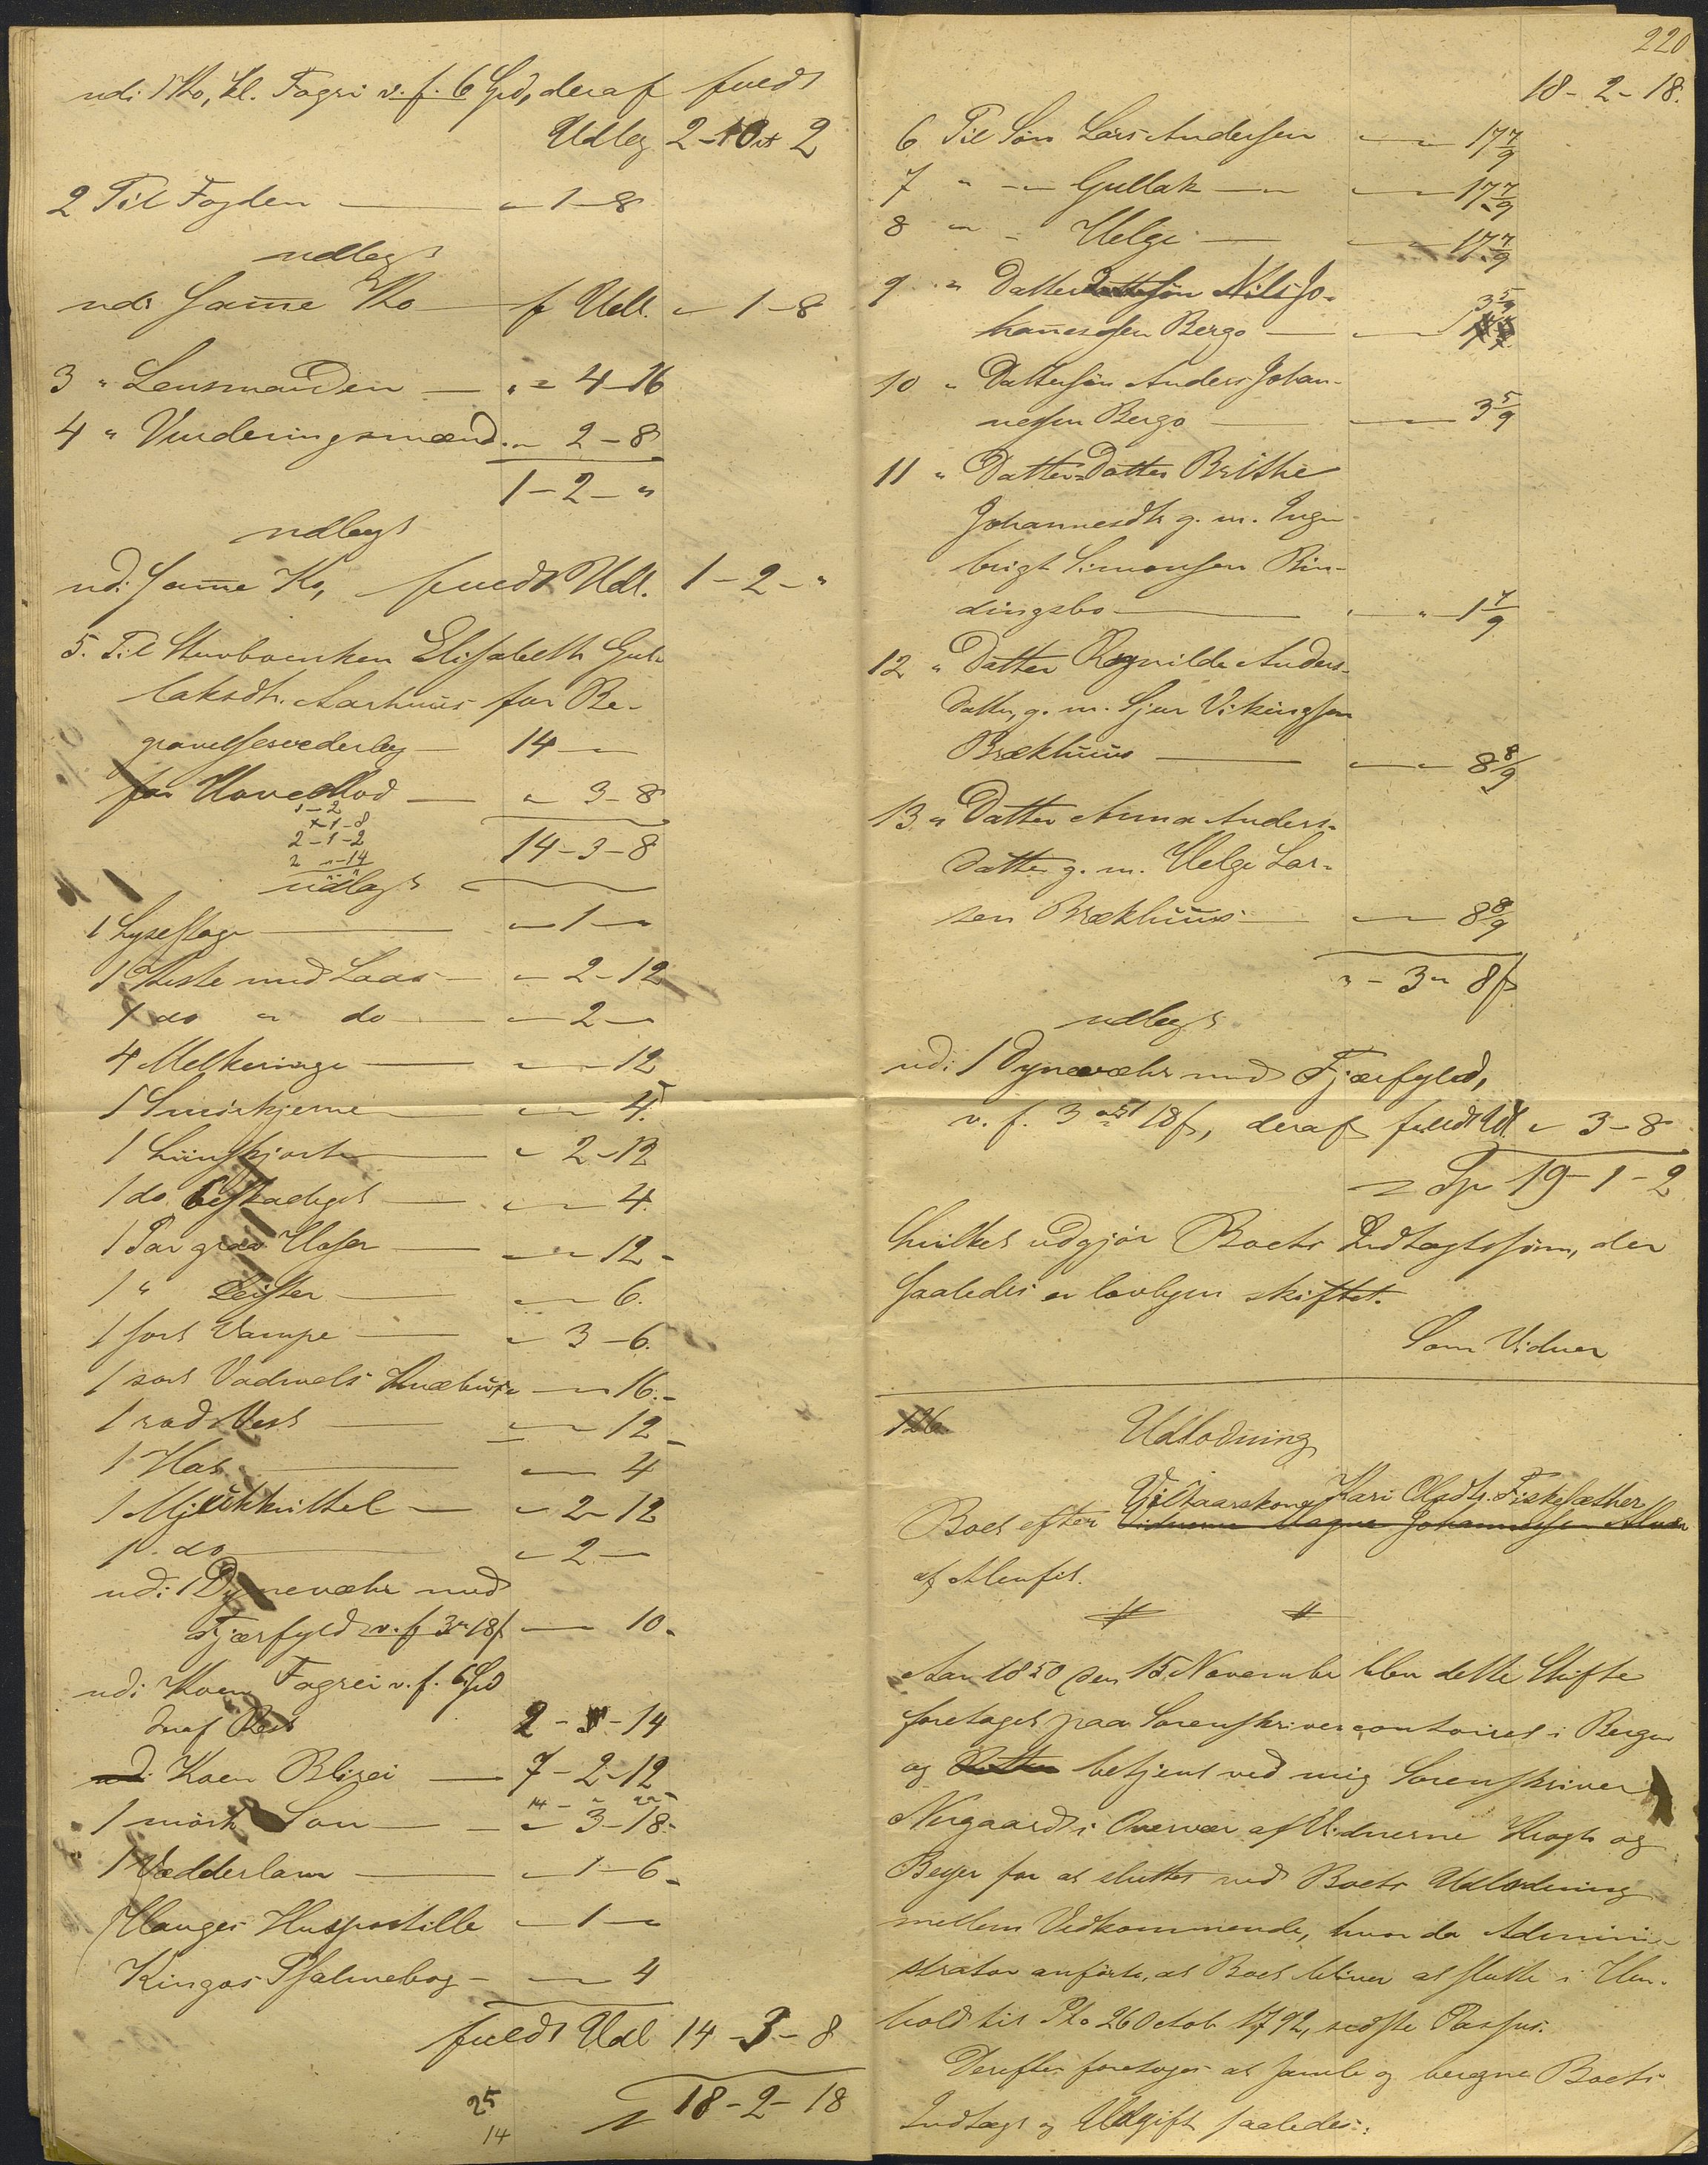 udi 1 Ko, kl. Fagri v. f. 6 Spd, deraf fuldt
Udlæg 2 - 2
2 Til Fogden — " 1 - 8
udlagt
udi samme Ko — f Udl. " 1 - 8
3 " Lensmanden — " " 4 - 16
4 " Vurderingsmænd " 2 - 8
1 - 2 - "
udlagt
udi samme Ko, fuldt Udl. 1 - 2 - "
5. Til Elisabeth Gul-
laksdtr. Aarhuus for Be-
gravelsesvederlag — 14 - "
for Hovedlod — " 3 - 8
1 - 2
1 - 8
2 - 1 - 2
2 " - 14
14 - 3 - 8
udlagt
1 Lysestage — " 1 - "
1 Kiste med Laas — " 2 - 12
1 do " do — " 2 - "
4 Melkeringe — " " 12
1 Smörkjerne — " " 4.
1 Linskjorte — " 2 - 12
1 do beskadiget — " " 4.
1 Par graa Hoser — " " 12 -
1 " Leister — " " 6.
1 sort Vampe — " 3 - 6.
1 sort Vadmels Knæbuxe — " 16. -
1 rød Vest — " " 12 -
1 Hat — " " 4
1 Mjelkkittel — " 2 - 12
1 do — " 2 - "
udi 1 Dynevæhr med
Fjærfyld v. f. 3 " 18 s — " " 10 -
udi Koen Fagrei v. f. 6 Spd
deraf Rest 2 - 14
udi Koen Blirei — 7 - 2 - 12
1 mörk Sou — " 3 - 18 -
1 Vædderlam — " 1 - 6 -
Hauges Huspostille — " 1 - "
Kingos Psalmebog - — " 4
fuldt Udl 14 - 3 - 8
18 - 2 - 18
25
14
220
18 - 2 - 18.
6 Til Sön Lars Andersen — " 17 7/9
7 " - " Gullak — " — " 17 7/9
8 " - Helge — " 17 7/9
9 " Dattersön Nils Jo-
hannessen Bergo — " 3 5/9
10 " Dattersön Anders Johan-
nessen Bergo — " 3 5/9
11 " Datter-Datter Brithe
Johannesdtr g. m. Inge-
brigt Simonsen Rin-
dingsbo — " " 1 7/9
12 " Datter Ragnilde Anders-
datter, g. m. Sjur Vikingsen
Brækhuus — " 8 8/9
13 " Datter Anna Anders-
datter g. m. Helge Lar-
sen Brækhuus — " 8 8/9
" - 3 " 8 s
udlagt
udi 1 Dynevæhr med Fjærfyld,
v. f. 3 ort 18 s, deraf fuldt Udl. " 3 - 8
Sp 19 - 1 - 2
hvilket udgjör Boets Indtægtssum, der
saaledes er lovligen skiftet.
Som Vidner
126.
Udlodning
Vilkaarskone Kari Olsdtr. Fiskesæther
Boet efter Magne Johannessen
af Alenfit.
Aar 1850 den 15 November blev dette Skifte
foretaget paa Sorenskrivercontoiret i Bergen
og Retten betjent ved mig Sorenskriver
Nergaard i Overvær af Vidnerne Krogh og
Beyer for at sluttes med Boets Udlodning
mellem Vedkommende, hvor da Admini-
strator anförte, at Boet bliver at slutte i Hen-
hold til Pto 26 Octob 1792, sidste Passus.
Derefter foretoges at samle og beregne Boets
Indtægt og Udgift saaledes: